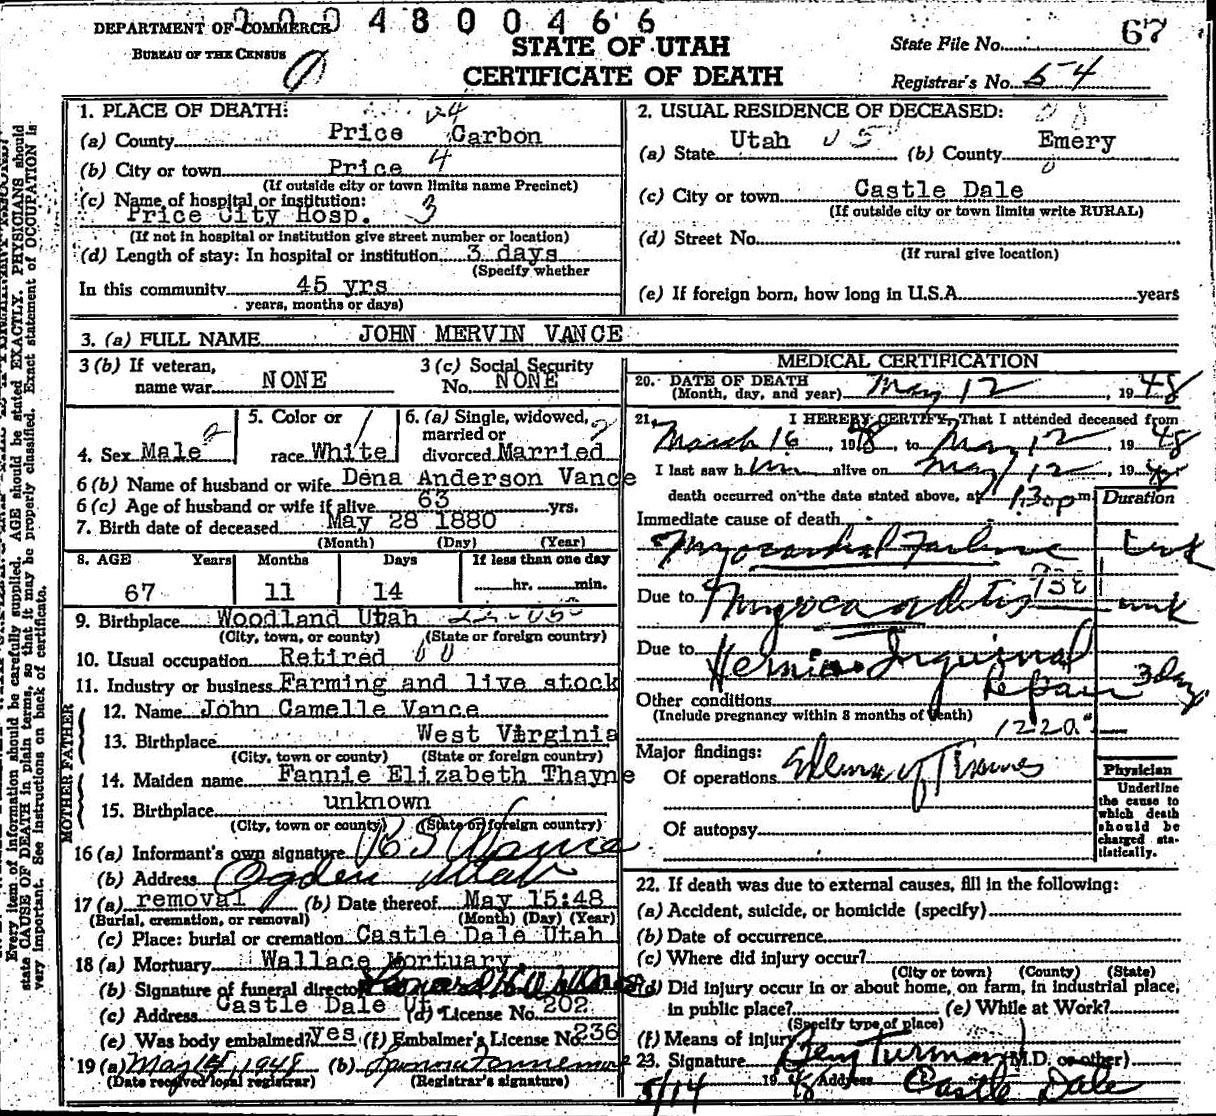 DEPARTMENT OF COMMERCE 0004800466
BUREAU OF THE CENSUS
STATE OF UTAH
CERTIFICATE OF DEATH
State File No. 67
Registrar's No. 54
1. PLACE OF DEATH:
(a) County Price Carbon
(b) City or town Price 4
(If outside city or town limits name Precinct)
(c) Name of hospital or institution:
Price City Hosp. 3
(If not in hospital or institution give street number or location)
(d) Length of stay: In hospital or institution 3 days
(Specify whether
In this community 45 yrs
years, months or days)
2. USUAL RESIDENCE OF DECEASED:
(a) State Utah (b) County Emery
(c) City or town Castle Dale
(If outside city or town limits write RURAL)
(d) Street No.
(If rural give location)
(e) If foreign born, how long in U.S.A. years
3. (a) FULL NAME JOHN MERVIN VANCE
3 (b) If veteran, name war NONE
3 (c) Social Security No. NONE
4. Sex Male 2
5. Color or race White 1
6. (a) Single, widowed, married or divorced Married 2
6 (b) Name of husband or wife Dena Anderson Vance
6 (c) Age of husband or wife if alive 63 yrs.
7. Birth date of deceased May 28 1880
(Month) (Day) (Year)
8. AGE Years Months Days If less than one day
67 11 14 hr. min.
9. Birthplace Woodland Utah
(City, town, or county) (State or foreign country)
10. Usual occupation Retired
11. Industry or business Farming and live stock
FATHER
12. Name John Camelle Vance
13. Birthplace West Virginia
(City, town or county) (State or foreign country)
MOTHER
14. Maiden name Fannie Elizabeth Thayne
15. Birthplace unknown
(City, town or county) (State or foreign country)
16 (a) Informant's own signature Vance
(b) Address Ogden Utah
17 (a) removal (b) Date thereof May 15:48
(Burial, cremation, or removal) (Month) (Day) (Year)
(c) Place: burial or cremation Castle Dale Utah
18 (a) Mortuary Wallace Mortuary
(b) Signature of funeral director
(c) Address Castle Dale Ut. (d) License No. 202
(e) Was body embalmed? yes (f) Embalmer's License No. 236
19 (a) May 14, 1948 (b)
(Date received local registrar) (Registrar's signature)
MEDICAL CERTIFICATION
20. DATE OF DEATH
(Month, day, and year) May 12, 1948
21. I HEREBY CERTIFY, That I attended deceased from
March 16 1948, to May 12 1948
I last saw him alive on May 12 1948
death occurred on the date stated above, at 1:30 p m.
Duration
Immediate cause of death
Myocardial Failure 1 wk
Due to Myocarditis unk
Due to Hernia Inguinal
Repair 3 days
Other conditions
(Include pregnancy within 8 months of death)
Major findings:
Of operations
Of autopsy
Physician
Underline
the cause to
which death
should be
charged sta-
tistically.
22. If death was due to external causes, fill in the following:
(a) Accident, suicide, or homicide (specify)
(b) Date of occurrence
(c) Where did injury occur?
(City or town) (County) (State)
(d) Did injury occur in or about home, on farm, in industrial place,
in public place? (e) While at Work?
(Specify type of place)
(f) Means of injury
23. Signature Turman (M.D. or other)
5/14 1948 Address Castle Dale
Every item of information should be carefully supplied. AGE should be stated EXACTLY. PHYSICIANS should
state CAUSE OF DEATH in plain terms, so that it may be properly classified. Exact statement of OCCUPATION is
very important. See instructions on back of certificate.